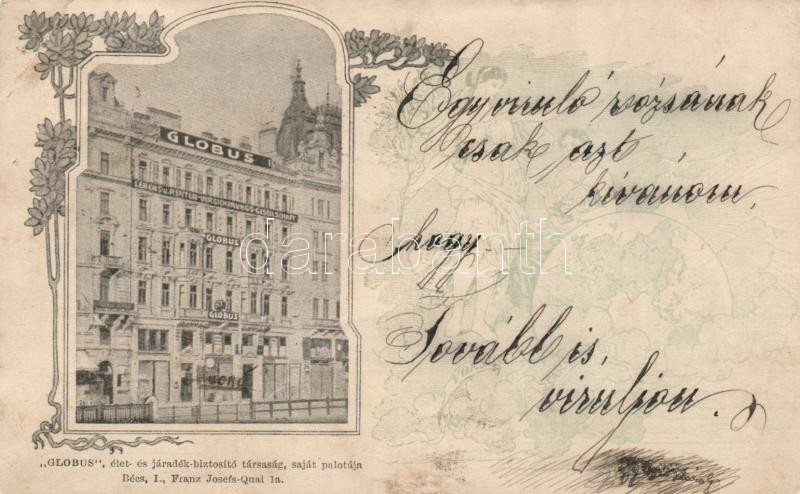 GLOBUS
LEBENS- U. RENTEN-VERSICHERUNGS-GESELLSCHAFT
GLOBUS
GLOBUS
„GLOBUS", élet- és járadék-biztosító társaság, saját palotája
Bécs, I., Franz Josefs-Quai 1a.
Egy viruló rózsának
csak azt
kivánom,
hogy –
Tovább is,
viruljon.
darabanth